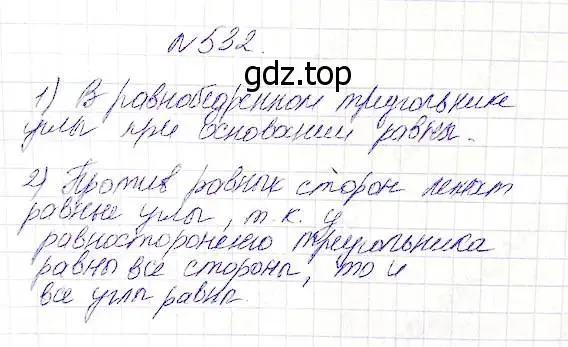 №532.
gdz.top
1) В равнобедренном треугольнике
углы при основании равны.
2) Против равных сторон лежат
равные углы, т.к. у
равностороннего треугольника
равны все стороны, то и
все углы равны.